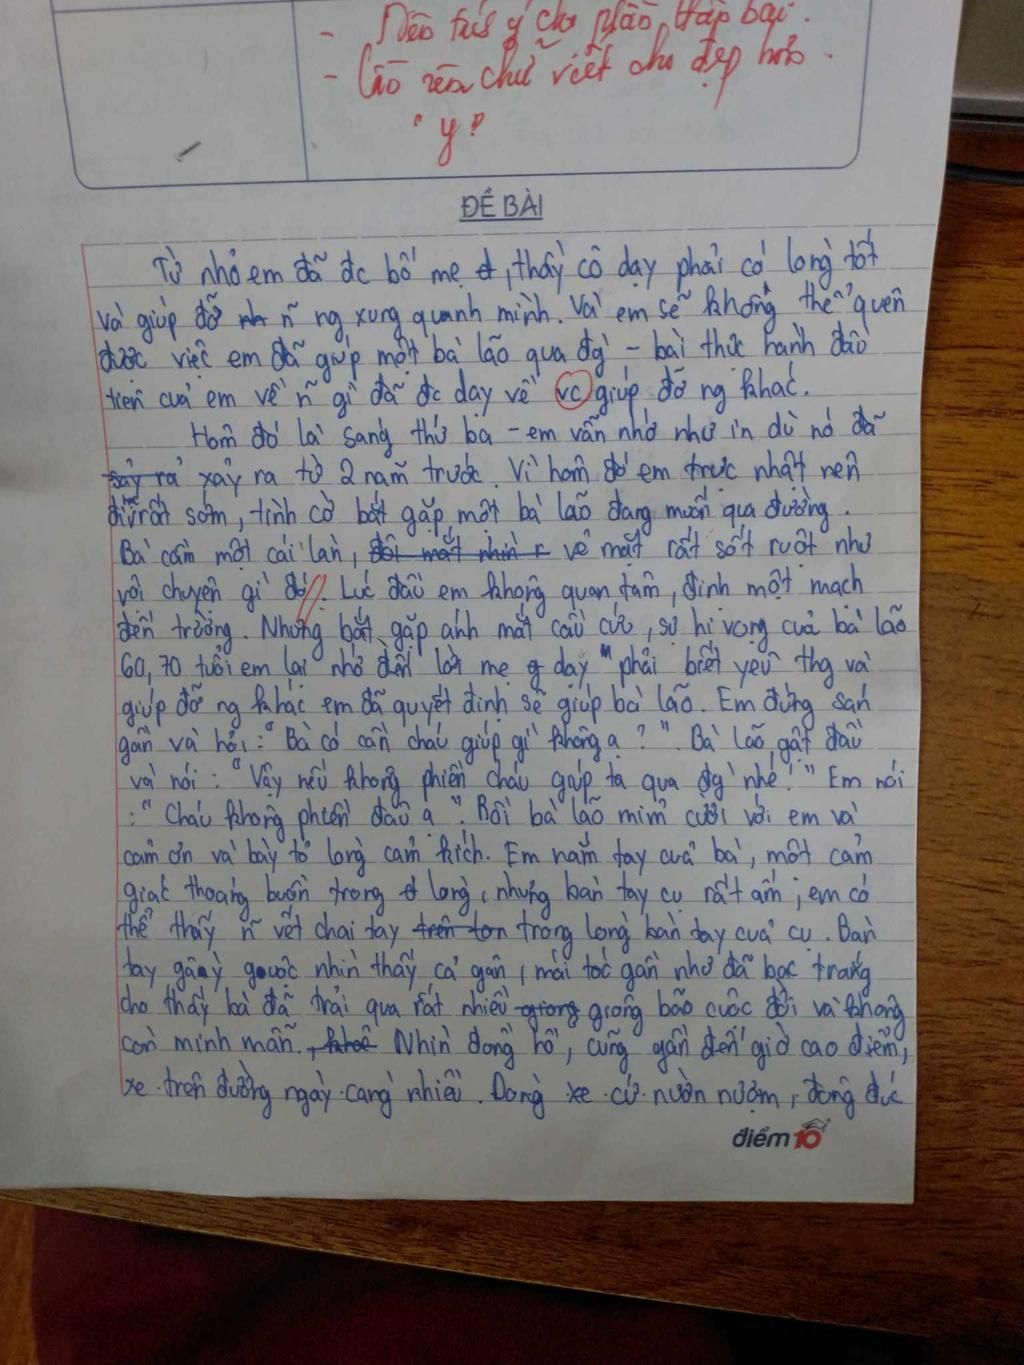 - Nên chú ý cho phần thân bài.
- Cần rèn chữ viết cho đẹp hơn.
"y"
ĐỀ BÀI
Từ nhỏ em đã đc bố mẹ, thầy cô dạy phải có lòng tốt
và giúp đỡ ~n ng xung quanh mình. Và em sẽ không thể quên
được việc em đã giúp một bà lão qua đg - bài thực hành đầu
tiên của em về ~n gì đã đc dạy về vc giúp đỡ ng khác.
Hôm đó là sáng thứ ba - em vẫn nhớ như in dù nó đã
sảy ra xảy ra từ 2 năm trước. Vì hôm đó em trực nhật nên
đi rất sớm, tình cờ bắt gặp một bà lão đang muốn qua đường.
Bà cầm một cái làn, đôi mắt nhìn r vẻ mặt rất sốt ruột như
vội chuyện gì đó. Lúc đầu em không quan tâm, định một mạch
đến trường. Nhưng bắt gặp ánh mắt cầu cứu, sự hi vọng của bà lão
60, 70 tuổi em lại nhớ đến lời mẹ dạy "phải biết yêu thg và
giúp đỡ ng khác em đã quyết định sẽ giúp bà lão. Em đứng sán
gần và hỏi: "Bà có cần cháu giúp gì không ạ?". Bà lão gật đầu
và nói: "Vậy nếu không phiền cháu giúp ta qua đg nhé!" Em nói
: "Cháu không phiền đâu ạ". Rồi bà lão mỉm cười với em và
cảm ơn và bày tỏ lòng cảm kích. Em nắm tay của bà, một cảm
giác thoáng buồn trong lòng, nhưng bàn tay cụ rất ấm, em có
thể thấy ~n vết chai tay trên ton trong lòng bàn tay của cụ. Bàn
tay gầy guộc nhìn thấy cả gân, mái tóc gần như đã bạc trắng
cho thấy bà đã trải qua rất nhiều giong giông bão cuộc đời và không
còn minh mẫn. , khoẻ Nhìn đồng hồ, cũng gần đến giờ cao điểm,
xe trên đường ngày càng nhiều. Dòng xe cứ nườn nượm, đông đúc
điểm 10